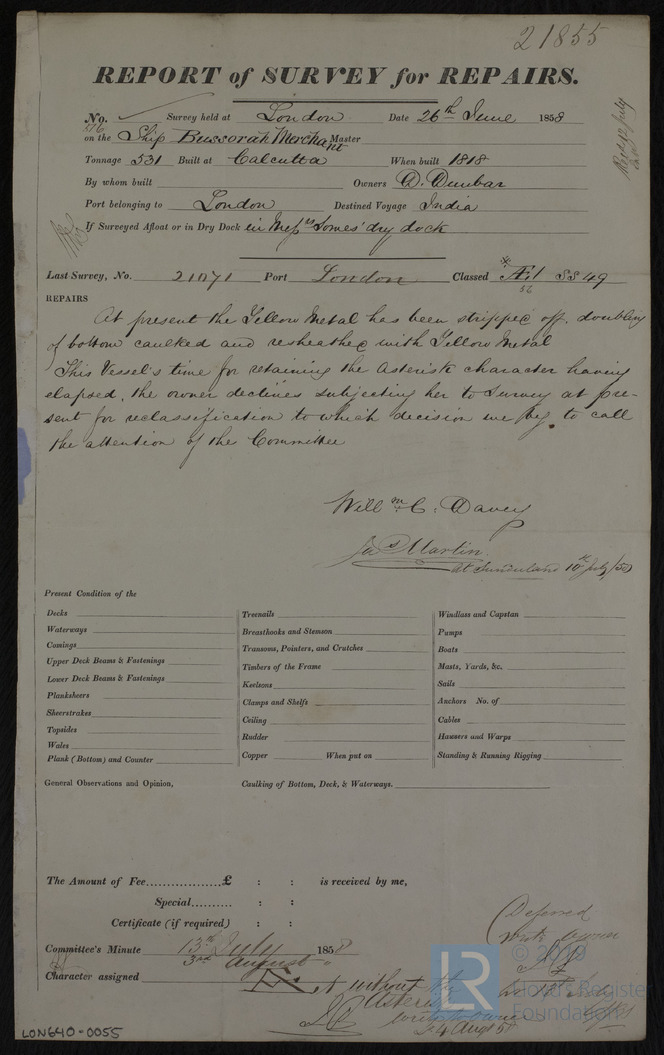 21855
REPORT of SURVEY for REPAIRS.
No. Survey held at London Date 26th June 1858
on the Ship Bussorah Merchant Master
Tonnage 531 Built at Calcutta When built 1818
By whom built Owners D. Dunbar
Port belonging to London Destined Voyage India
If Surveyed Afloat or in Dry Dock in Messrs Somes' dry dock
Last Survey, No. 21071 Port London Classed *Æ1 SS 49
REPAIRS
At present the Yellow Metal has been stripped off, doubling
of bottom caulked and resheathed with Yellow Metal
This Vessel's time for retaining the Asterisk character having
elapsed, the owner declines subjecting her to Survey at pre-
sent for reclassification to which decision we beg to call
the attention of the Committee
Willm C. Davey
Jas Martin
at Sunderland 10th July
Present Condition of the
Decks
Waterways
Comings
Upper Deck Beams & Fastenings
Lower Deck Beams & Fastenings
Planksheers
Sheerstrakes
Topsides
Wales
Plank (Bottom) and Counter
Treenails
Breasthooks and Stemson
Transoms, Pointers, and Crutches
Timbers of the Frame
Keelsons
Clamps and Shelfs
Ceiling
Rudder
Copper When put on
Windlass and Capstan
Pumps
Boats
Masts, Yards, &c.
Sails
Anchors No. of
Cables
Hawsers and Warps
Standing & Running Rigging
General Observations and Opinion, Caulking of Bottom, Deck, & Waterways.
The Amount of Fee..................£ : : is received by me,
Special.......... : :
Certificate (if required) : :
Committee's Minute 13th July 1858
3rd August
Character assigned
without the
Asterisk
Deferred
write owner
4 Aug 58
LR
© 2019
Lloyd's Register
Foundation
LON640-0055